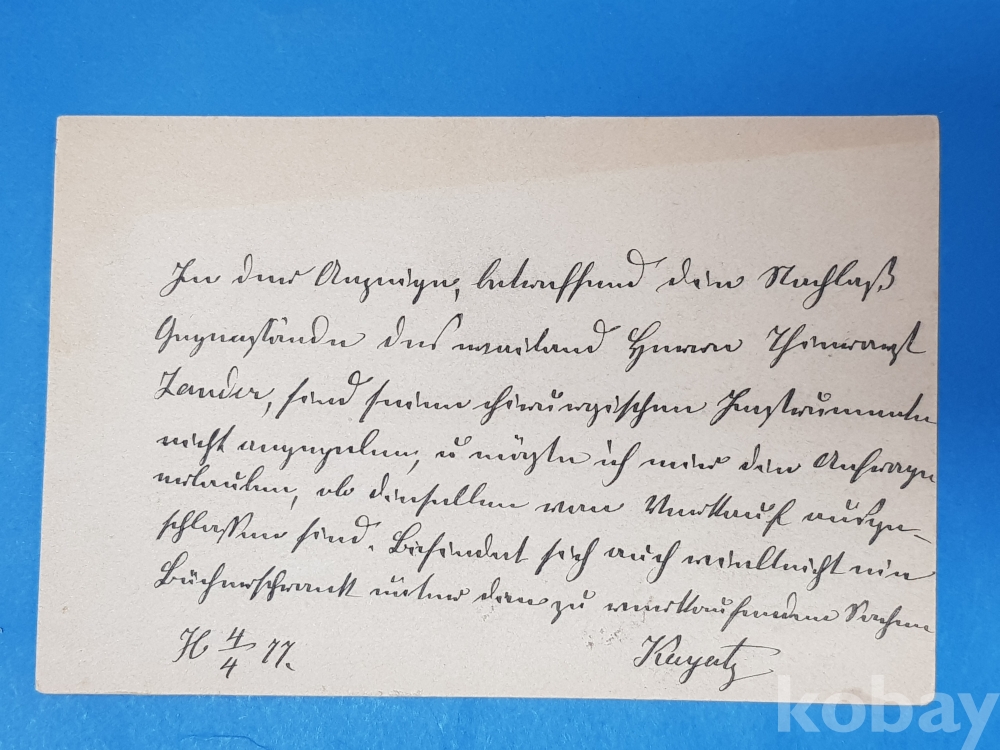 In der Anzeige, betreffend den Nachlaß
Gegenstände des weiland Herrn Thierarzt
Zander, sind seine chirurgischen Instrumente
nicht angegeben, u mögte ich mir die Anfrage
erlauben, ob dieselben vom Verkauf ausge-
schlossen sind. Befindet sich auch vielleicht ein
Bücherschrank unter den zu verkaufenden Sachen
H 4/4 77.
Kayatz
kobay